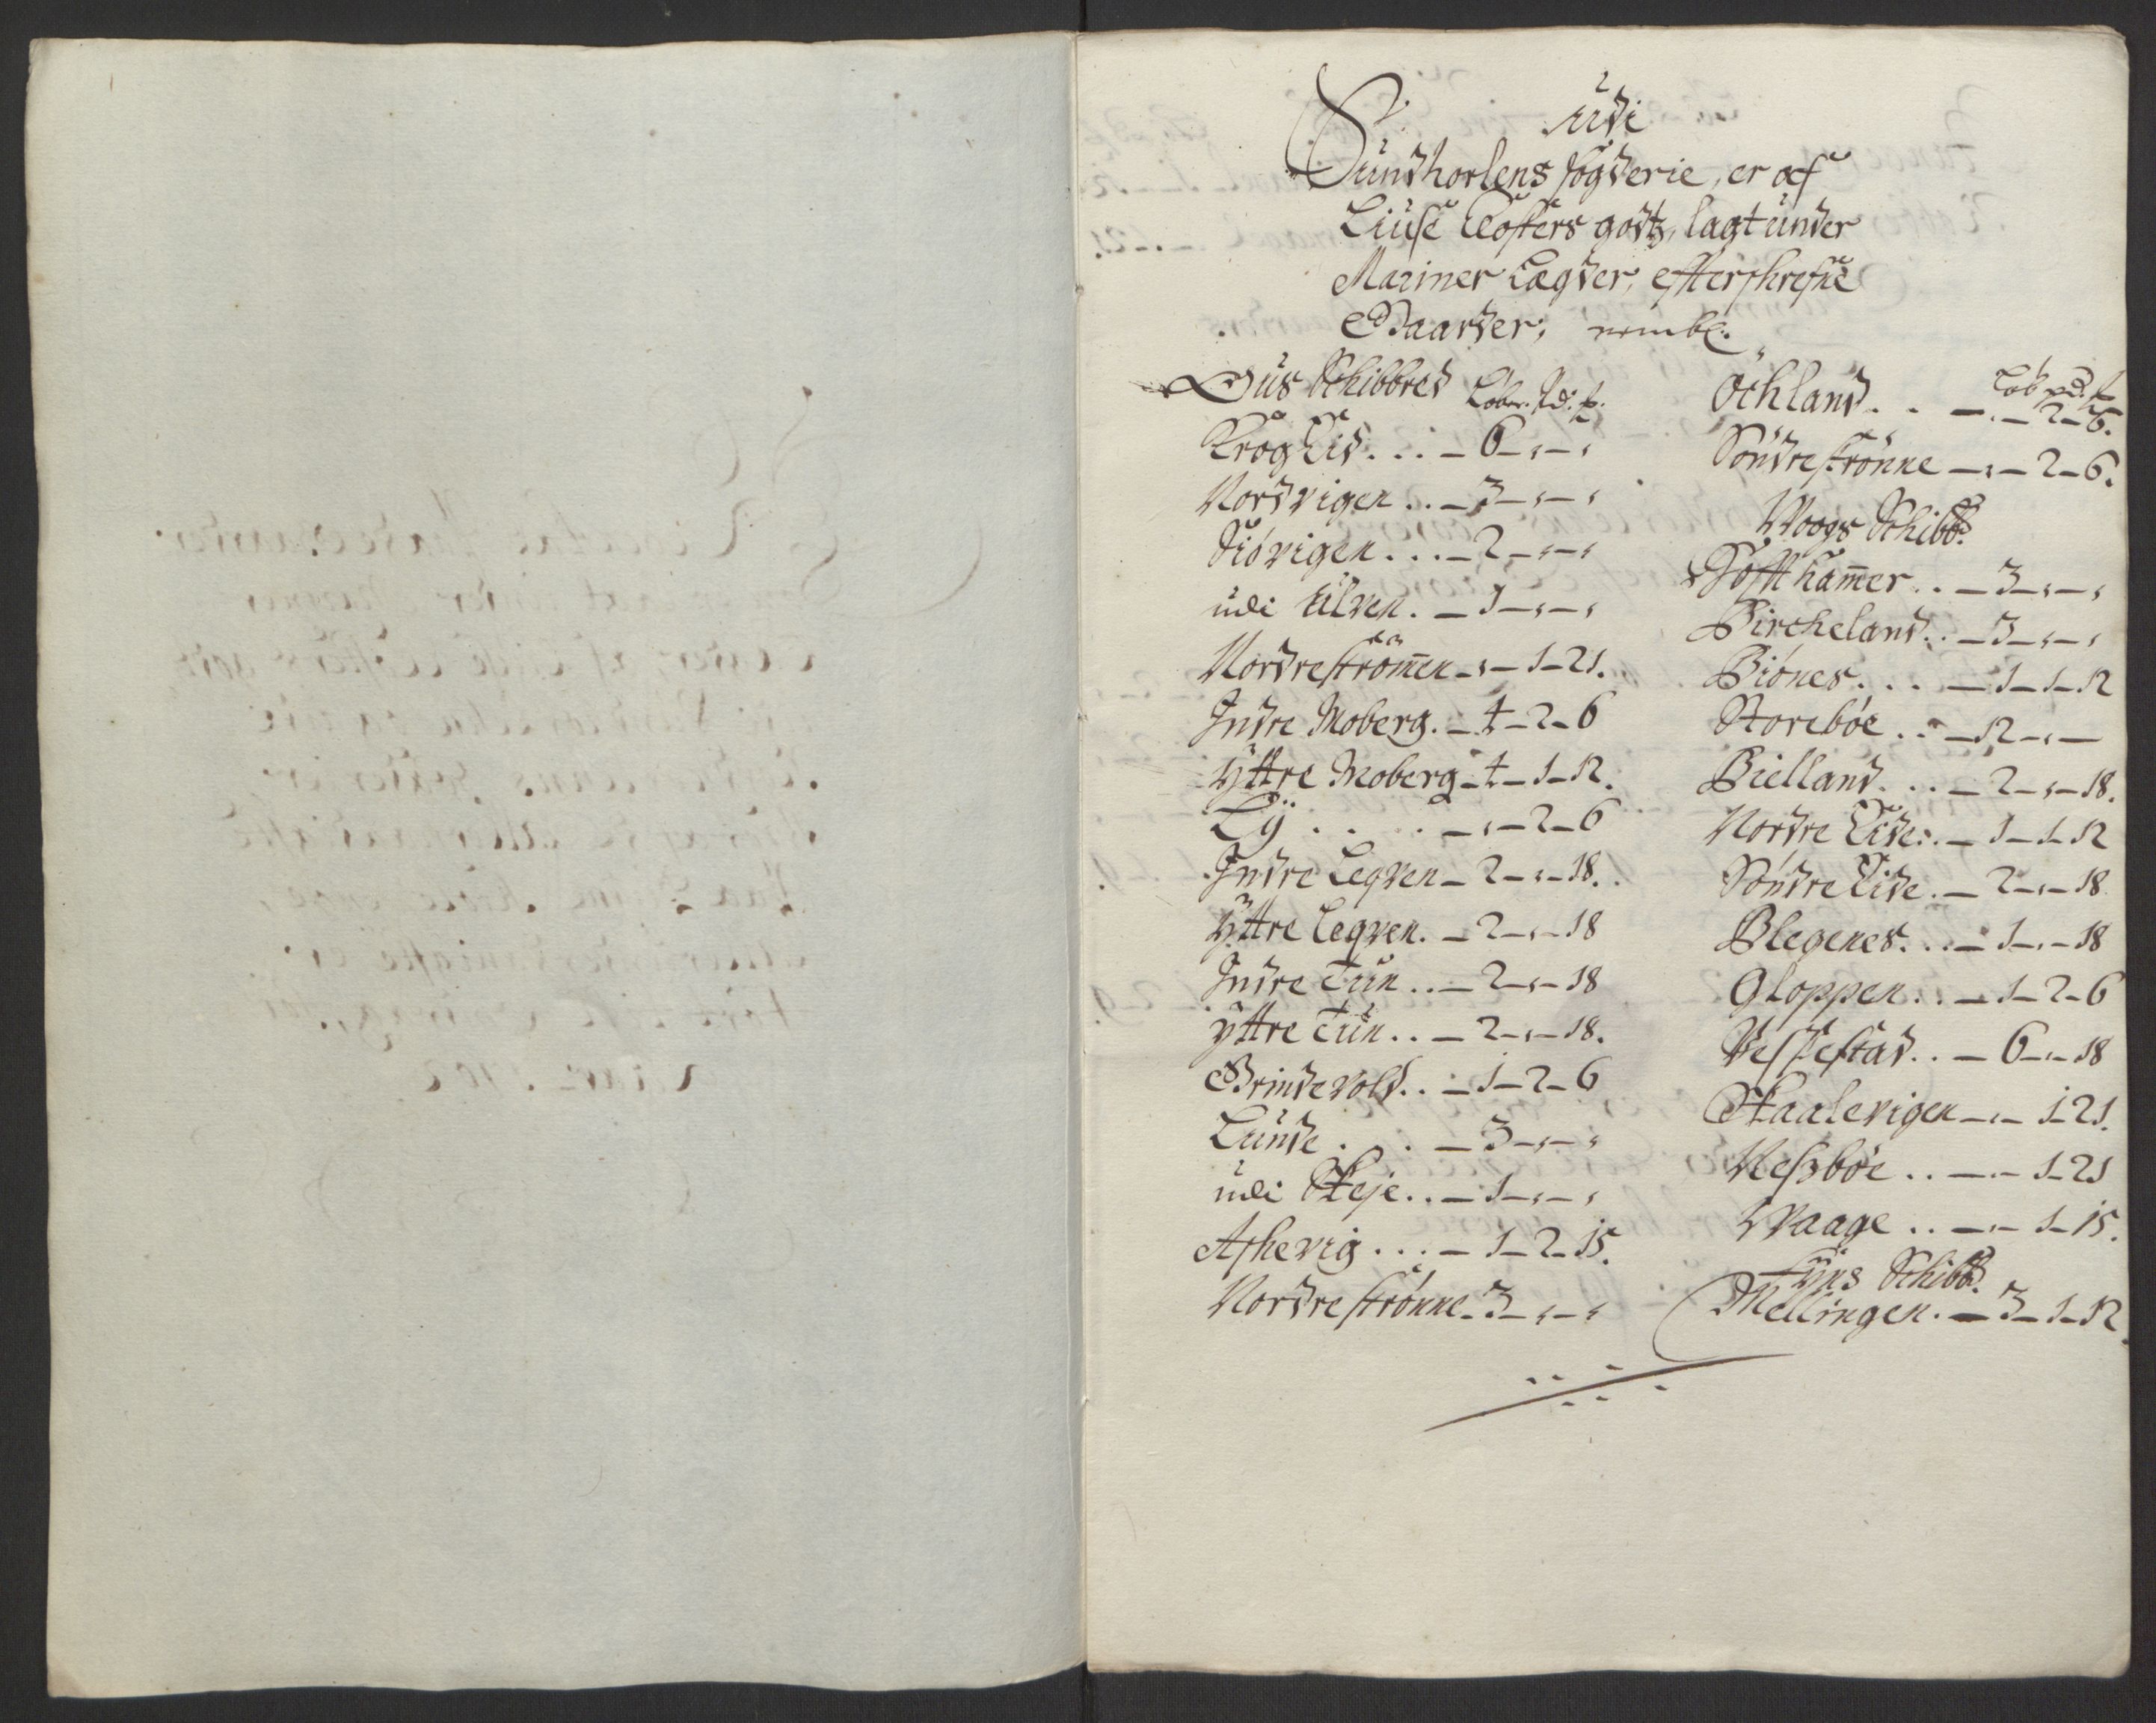 Udi
Sundhorlens fögderie, er af
Liuse Closters godtz, lagt under
Mariner Lægder, efterskrefne
Gaarder, nembl.
Ous Schibbred Löber. Pd. ₰.
Krog Eid . . . - 6 - „ - „
Nordvigen . . - 3 - „ - „
Siövigen . . . - 2 - „ - „
udi Elven . - 1 - „ - „
Nordreströmen - „ - 1 - 21.
Indre Moberg . - 4 - 2 - 6
Yttre Moberg - 4 - 1 - 12.
Lÿ . . . . - „ - 2 - 6
Indre Legven - 2 - „ - 18.
Yttre Legven . - 2 - „ - 18
Indre Tun . . - 2 - „ - 18
yttre Tun . . - 2 - „ - 18.
Grindevold . . - 1 - 2 - 6
Lunde . . . - 3 - „ - „
udi Skeje . . - 1 - „ - „
Askevig . . . - 1 - 2 - 15.
Nordre strönne - 3 - „ - „
Löb pd. ₰
Öchland . . - „ - 2 - 6.
Söndre strönne - „ - 2 - 6.
Waags Schibb.
Tofft hamer . . - 3 - „ - „
Bircheland . . - 3 - „ - „
Biönes . . . - 1 - 1 - 12
Storeböe . . - 12 - „ -
Bielland . . . - 2 - „ - 18.
Nordre Eide . . - 1 - 1 - 12
Söndre Eide . - 2 - „ - 18
Blegenes . . . - 1 - „ - 18
Gloppen . . - 1 - 2 - 6
Vestestad . . - 6 - „ - 18
Skaalevigen - „ - 1 - 21.
Neszböe . . - „ - 1 - 21
Waage . . - „ - 1 - 15.
Fyns Schibb.
Mellingen . - 3 - 1 - 12.